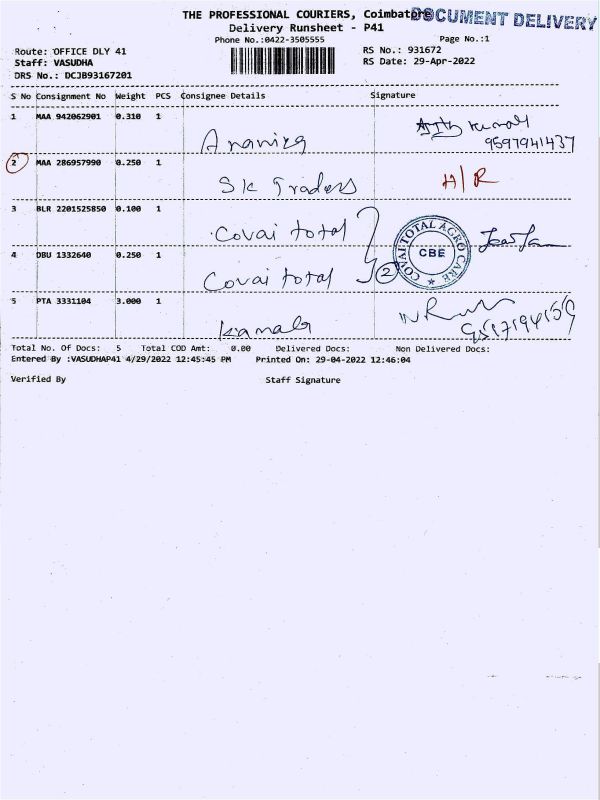 THE PROFESSIONAL COURIERS, Coimbatore
DOCUMENT DELIVERY
Delivery Runsheet - P41
Phone No.:0422-3505555
Page No.:1
Route: OFFICE DLY 41
RS No.: 931672
Staff: VASUDHA
RS Date: 29-Apr-2022
DRS No.: DCJB93167201
S No Consignment No Weight PCS Consignee Details Signature
1 MAA 942062901 0.310 1
Ajith Kumar
9597941437
2 MAA 286957990 0.250 1
SK Traders H/R
3 BLR 2201525850 0.100 1
Covai total
COVAI TOTAL AGRO CARE
CBE
4 DBU 1332640 0.250 1
Covai total 2
5 PTA 3331104 3.000 1
Kamala
Total No. Of Docs: 5 Total COD Amt: 0.00 Delivered Docs: Non Delivered Docs:
Entered By :VASUDHAP41 4/29/2022 12:45:45 PM Printed On: 29-04-2022 12:46:04
Verified By Staff Signature